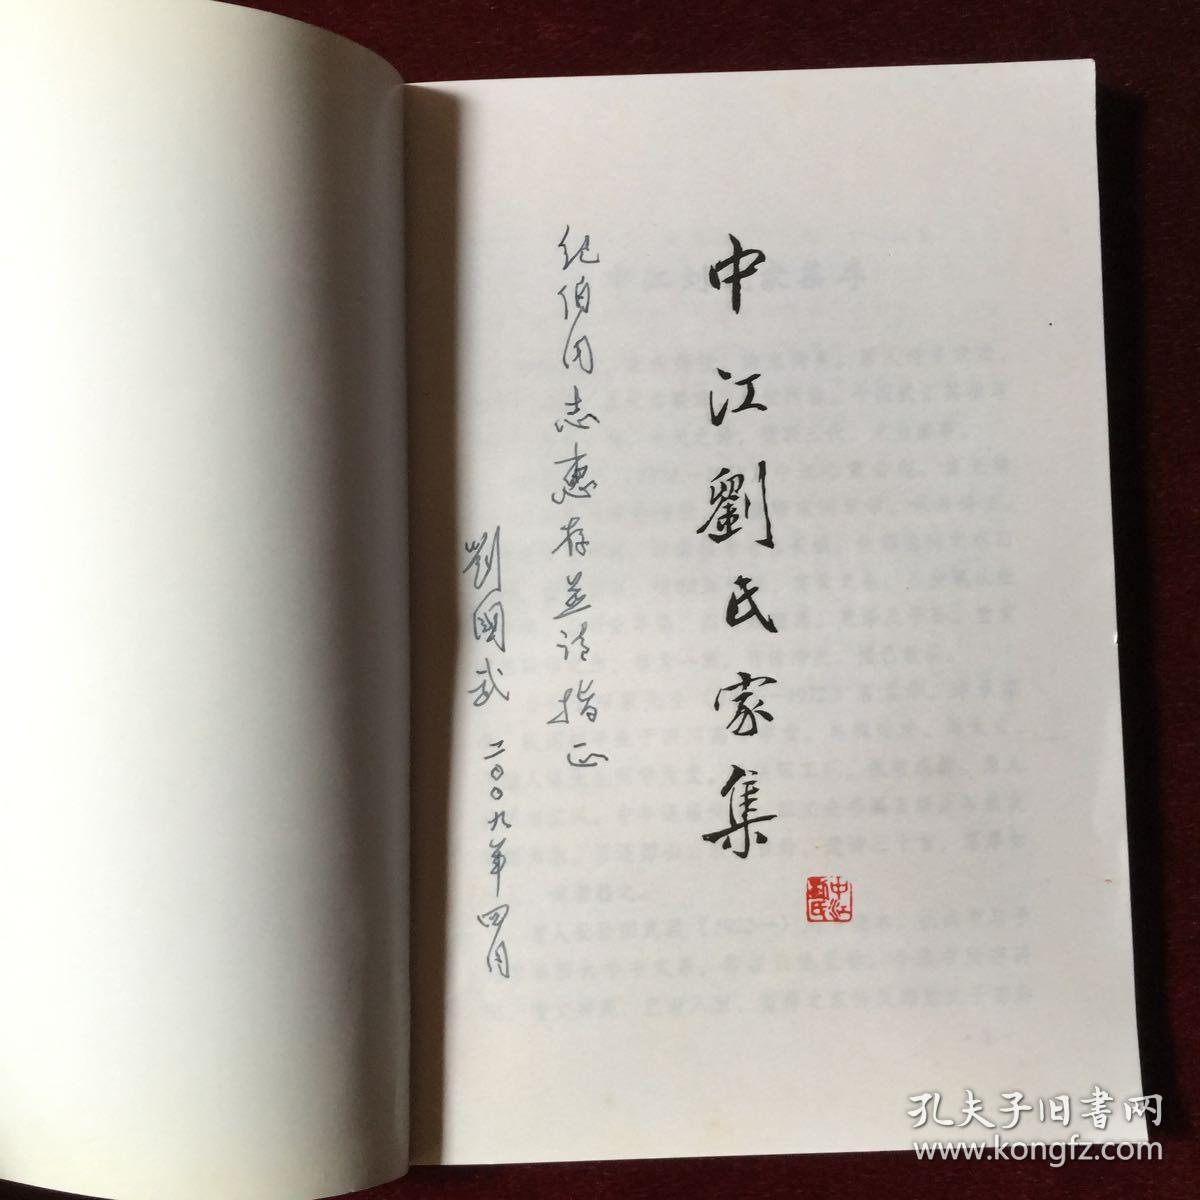 中江劉氏家集
中江
纪伯同志惠存并请指正
劉國武 二〇〇九年四月
孔夫子旧书网
www.kongfz.com